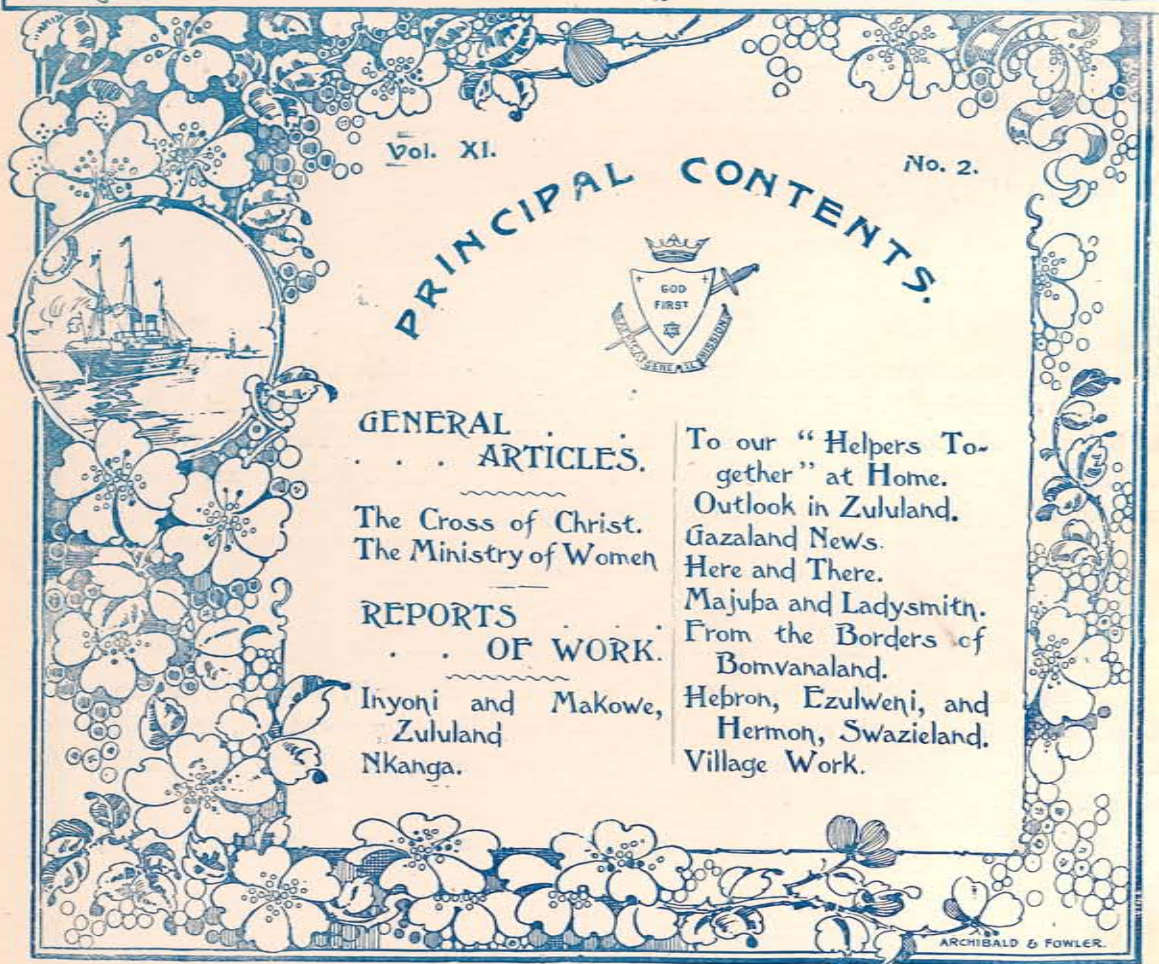 Vol. XI.
No. 2.
PRINCIPAL CONTENTS.
GOD
FIRST
GENERAL MISSION
GENERAL . .
. . . ARTICLES.
The Cross of Christ.
The Ministry of Women
REPORTS . . .
. . OF WORK.
Inyoni and Makowe,
Zululand
Nkanga.
To our “Helpers To-
gether” at Home.
Outlook in Zululand.
Gazaland News.
Here and There.
Majuba and Ladysmith.
From the Borders of
Bomvanaland.
Hebron, Ezulweni, and
Hermon, Swazieland.
Village Work.
ARCHIBALD & FOWLER.